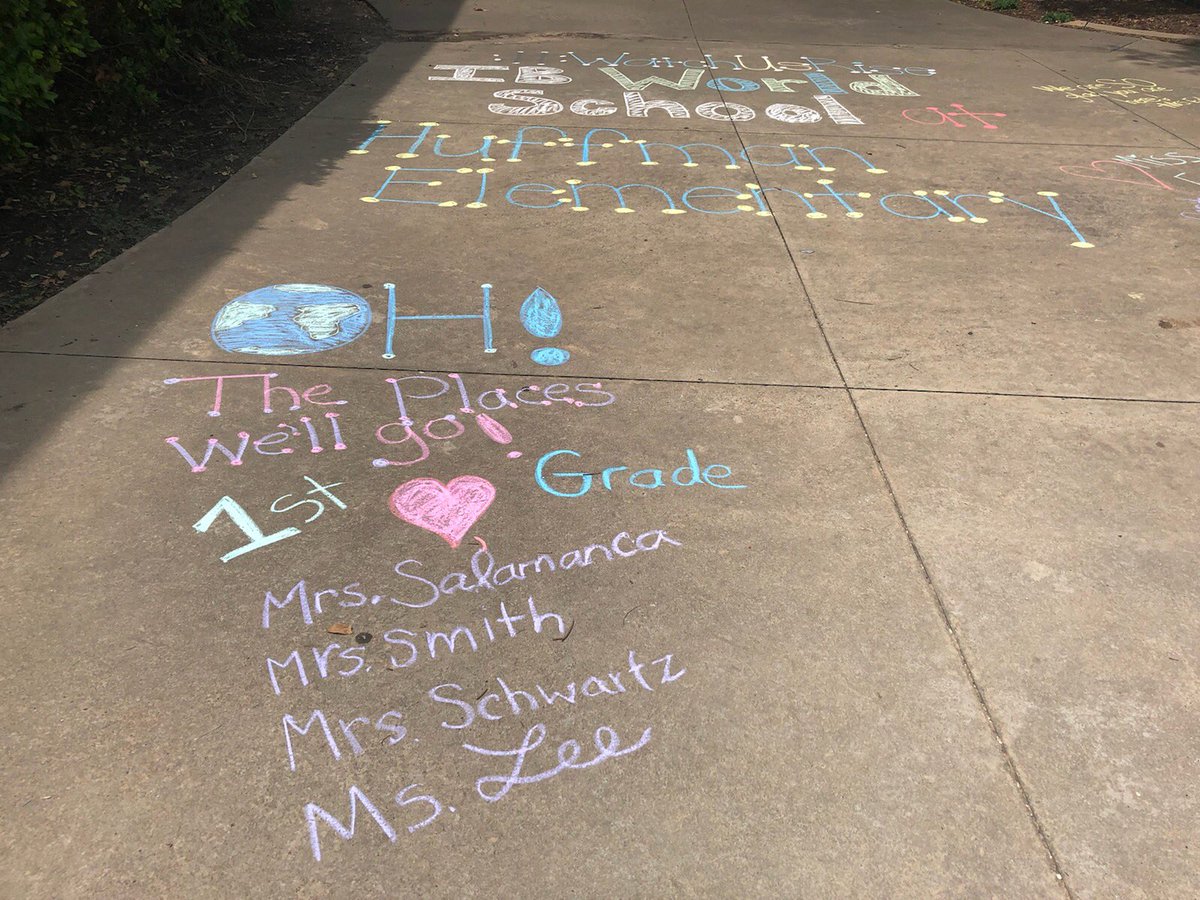 Watch Us Rise
IB World
School at
Huffman
Elementary
OH!
The Places
We'll go!
1st Grade
Mrs. Salamanca
Mrs. Smith
Mrs. Schwartz
Ms. Lee
Miss